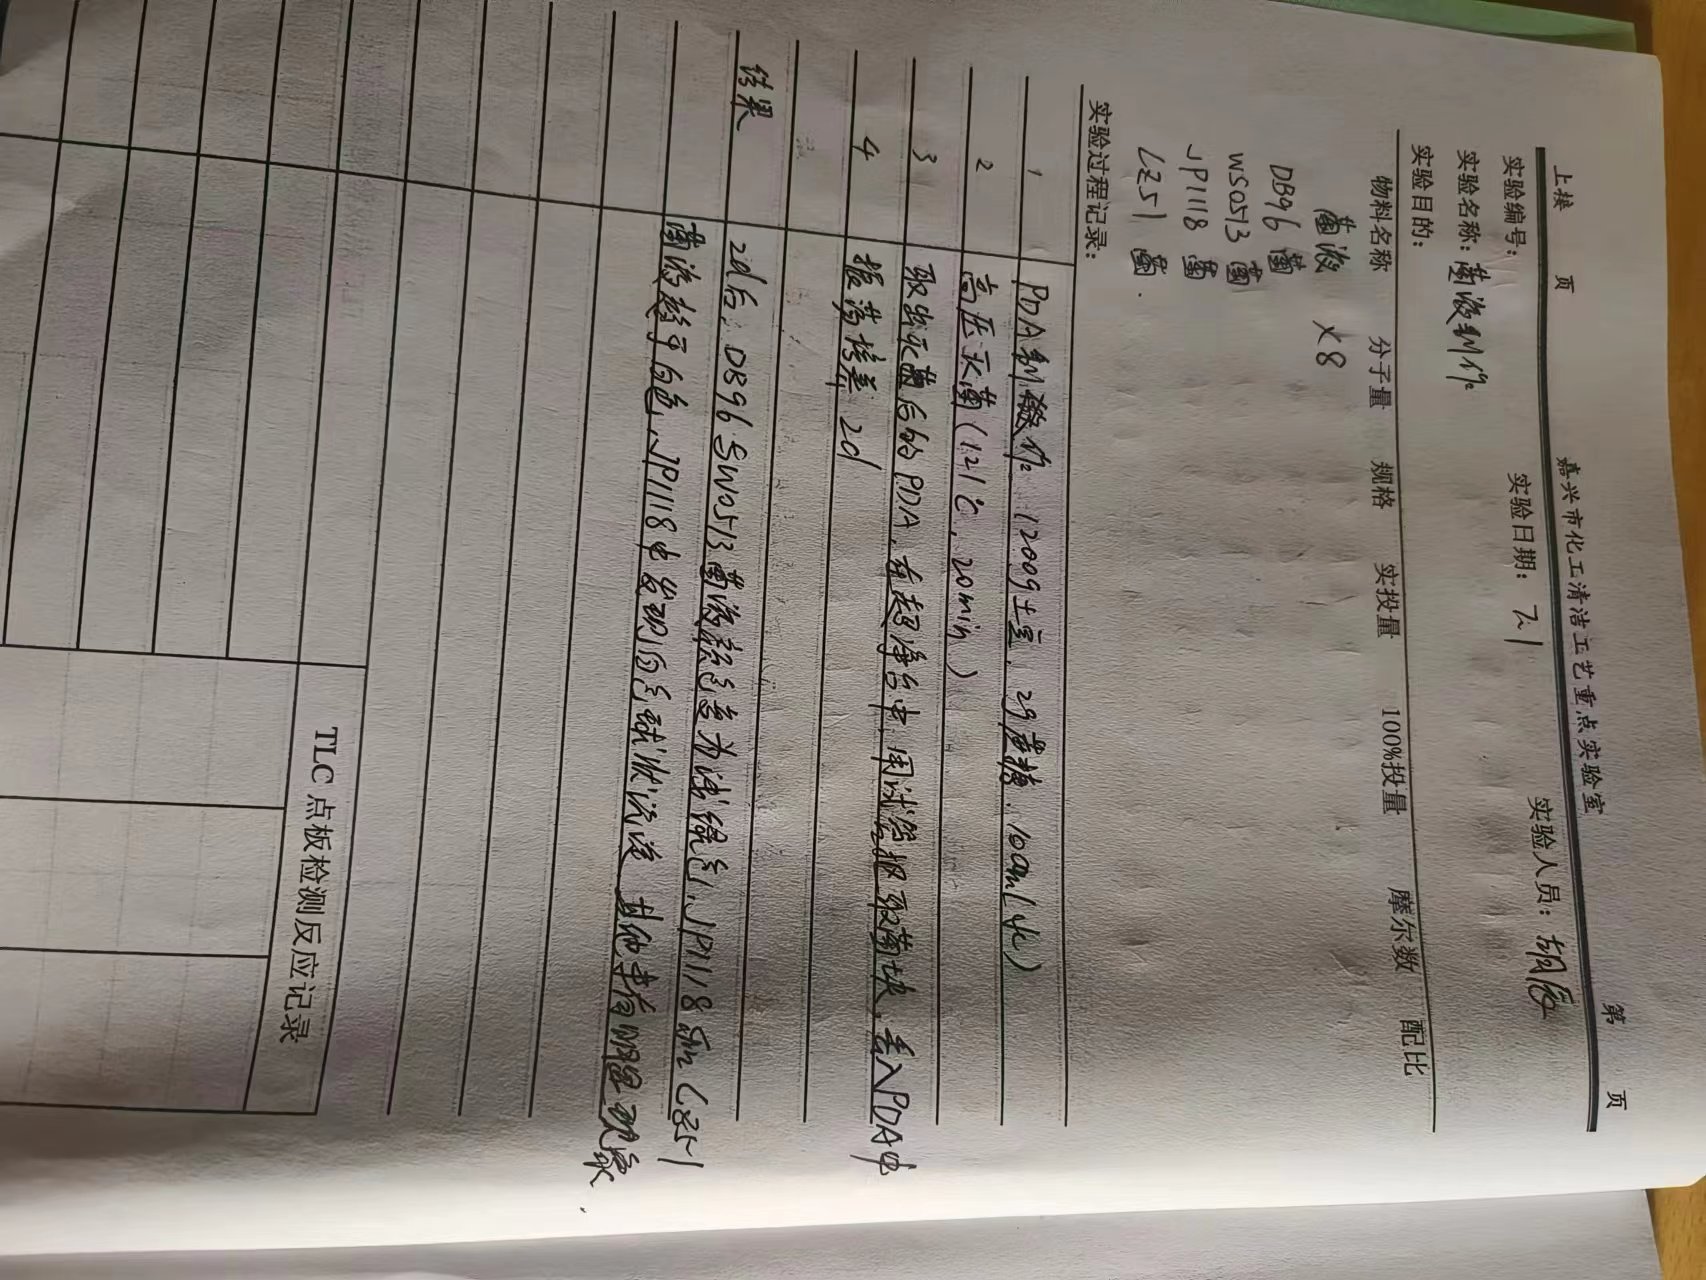 上接 页 嘉兴市化工清洁工艺重点实验室 第 页
实验编号: 实验日期: 7.1 实验人员: 胡
实验名称: 菌液制作
实验目的:
物料名称 分子量 规格 实投量 100%投量 摩尔数 配比
菌液 ×8
DB96 菌
WS0513 菌
JP1118 菌
LZ51 菌.
实验过程记录:
1 PDA制作 (200g土豆, 2g蔗糖, 100ml水)
2 高压灭菌 (121℃, 20min)
3 取出灭菌后的PDA, 在超净台中, 用试管抠取菌块, 丢入PDA中
4 振荡培养 2d
结果 2d后, DB96与W0513菌液颜色变为浅绿色, JP1118和LZ51
菌液趋于白色, JP1118中发现白色球状沉淀, 其他未有明显现象.
TLC 点板检测反应记录